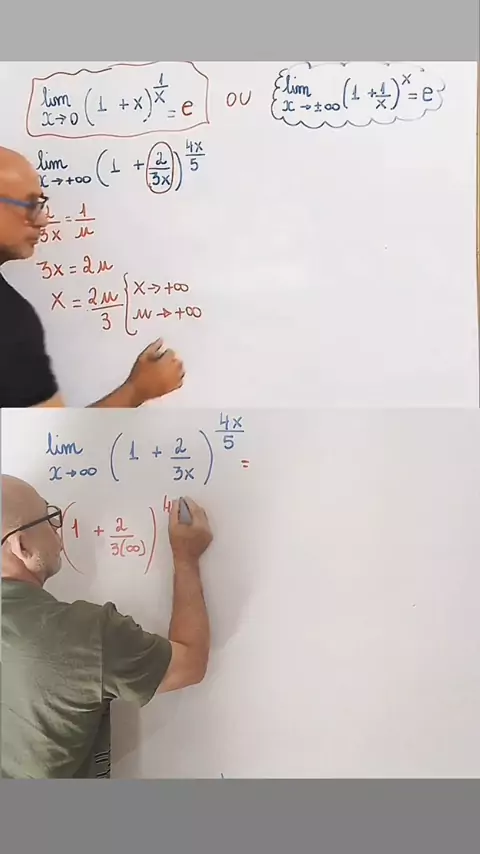 lim x→0 (1 + x)^(1/x) = e OU lim x→±∞ (1 + 1/x)^x = e
lim x→+∞ (1 + 2/3x)^(4x/5)
2/3x = 1/u
3x = 2u
x = 2u/3 { x→+∞
u→+∞
lim x→∞ (1 + 2/3x)^(4x/5) =
(1 + 2/3(∞))^4